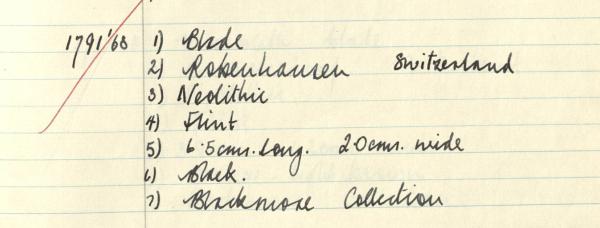 1791'68 1) Blade
2) Robenhausen Switzerland
3) Neolithic
4) Flint
5) 6.5cms. long. 2.0cms. wide
6) Black.
7) Blackmore Collection